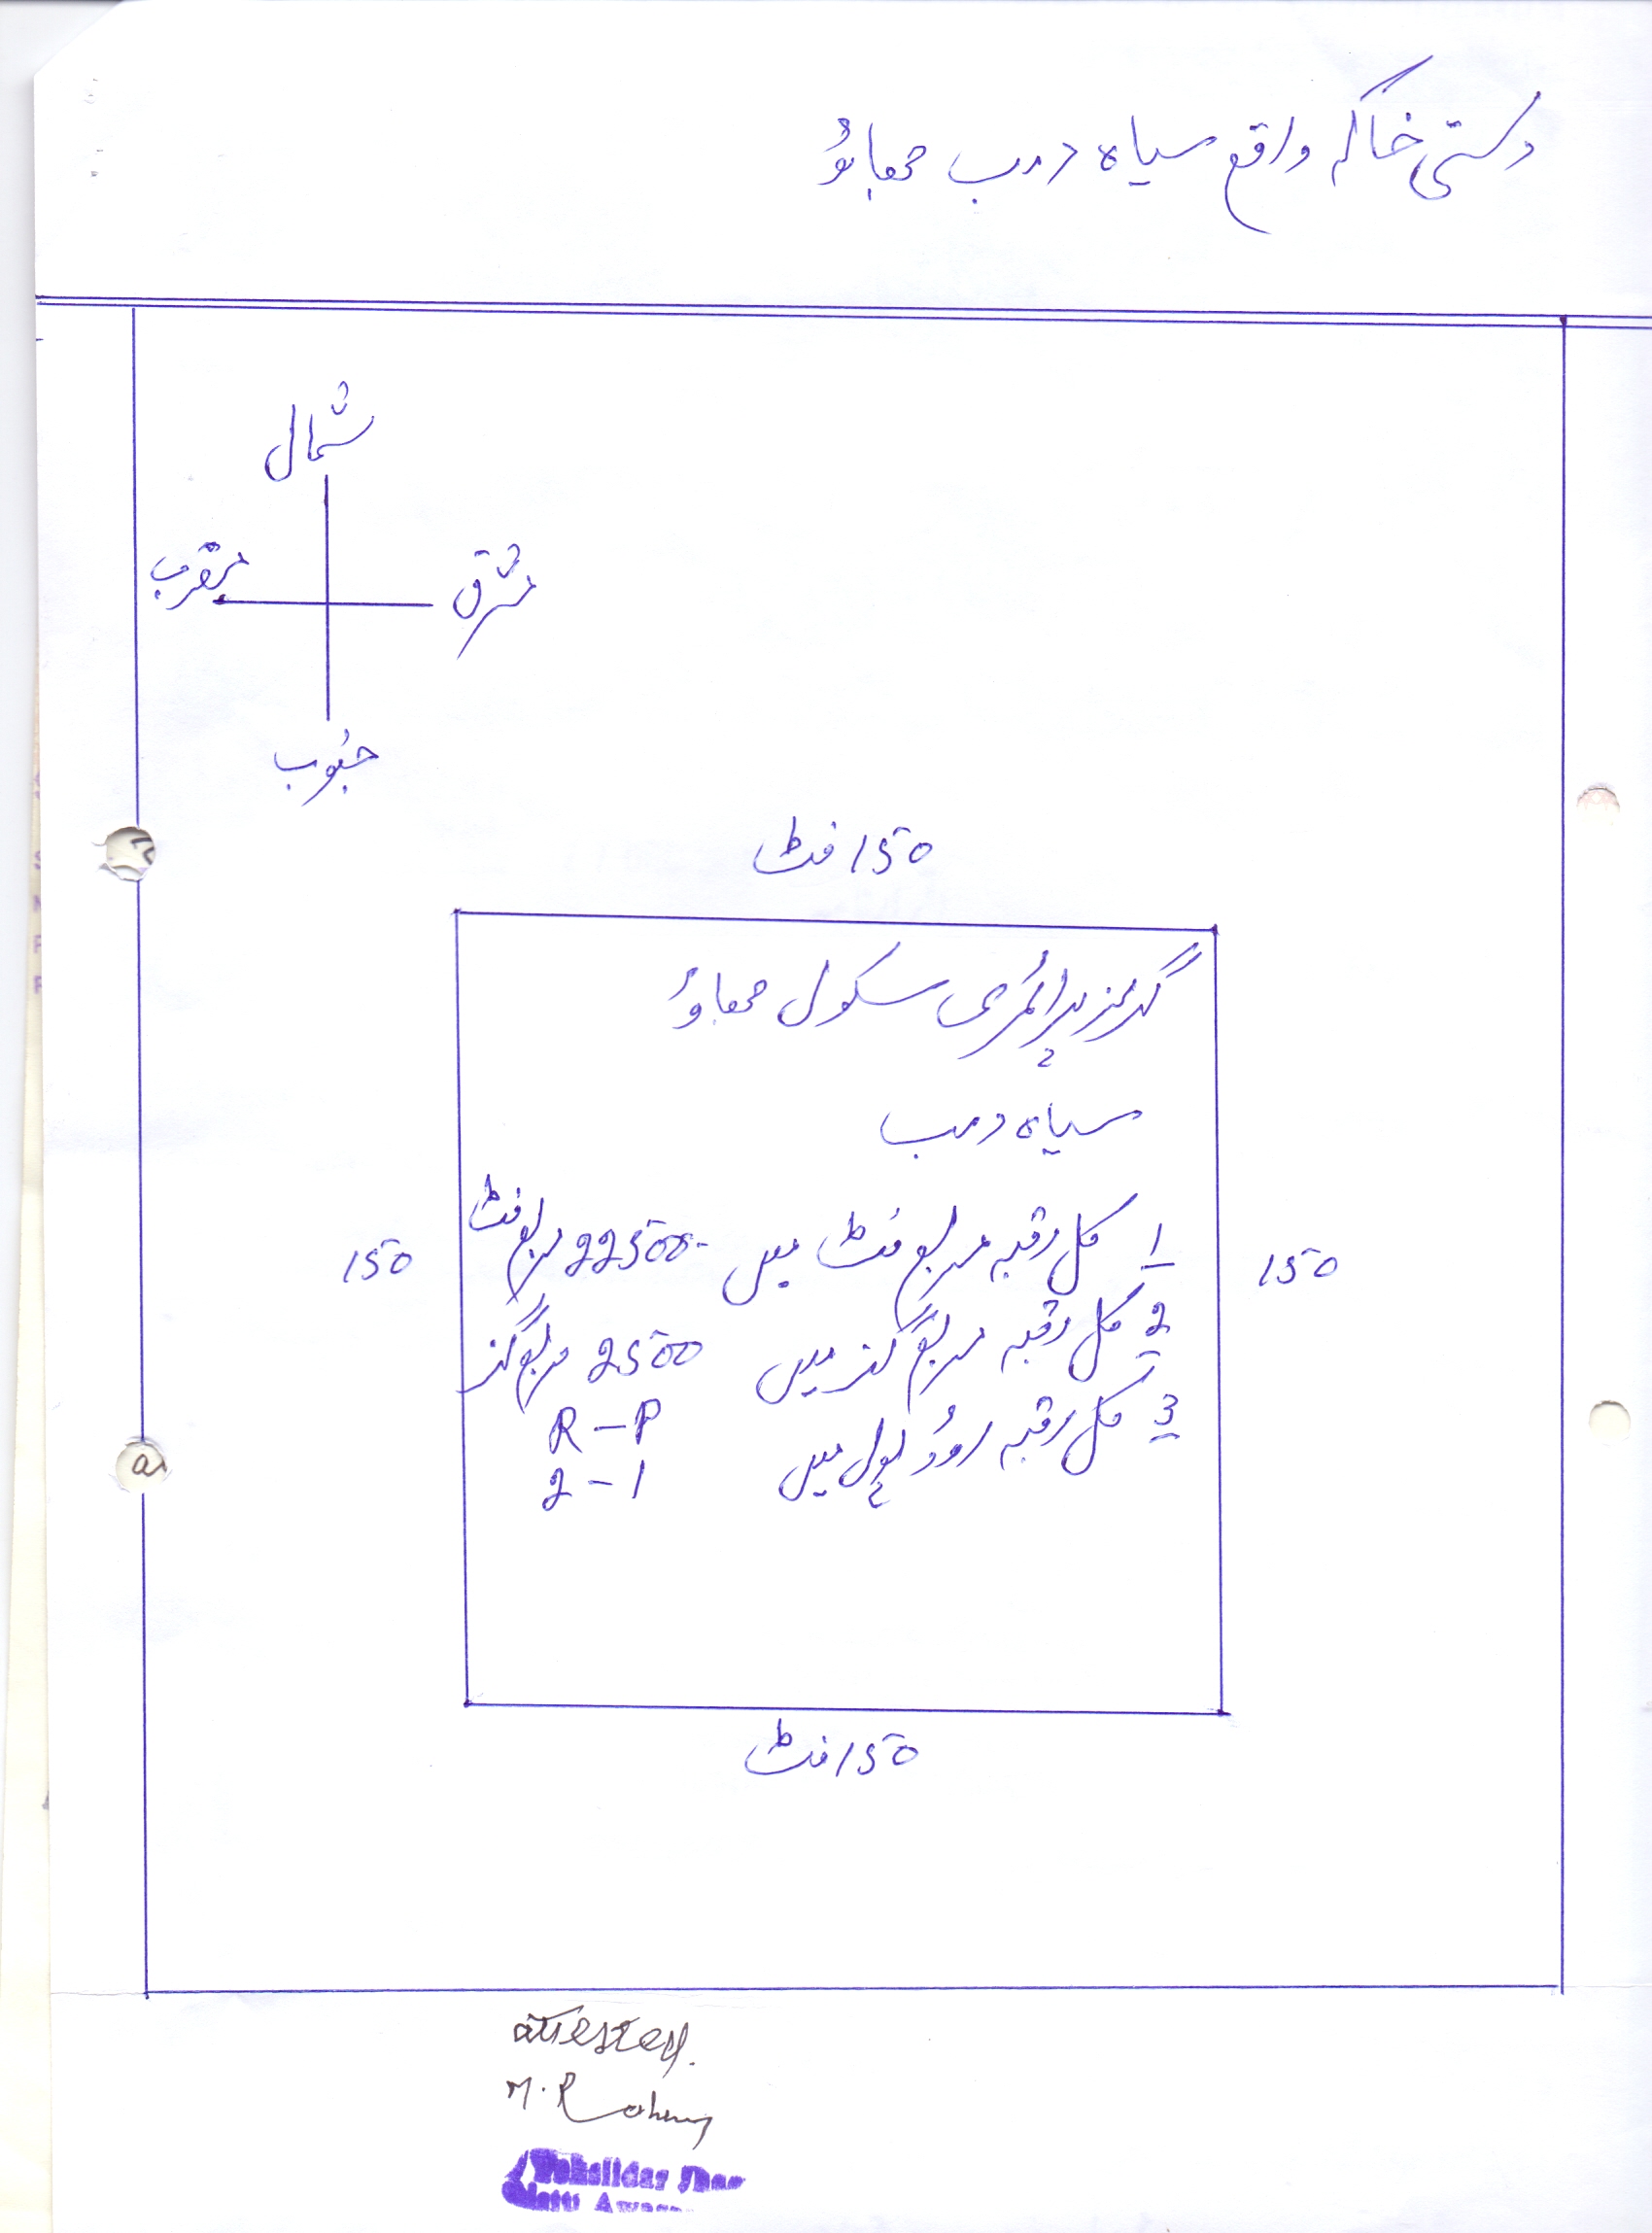 دستی خاکہ واقع سیاہ دمب جھاؤ
شمال
مغرب
مشرق
جنوب
150 فٹ
گرلز پرائمری سکول جھاؤ
سیاہ دمب
150
150
1 کل رقبہ مربع فٹ میں 22500 مربع فٹ
2 کل رقبہ مربع گز میں 2500 مربع گز
3 کل رقبہ روڈ پول میں R-P
2-1
150 فٹ
attested.